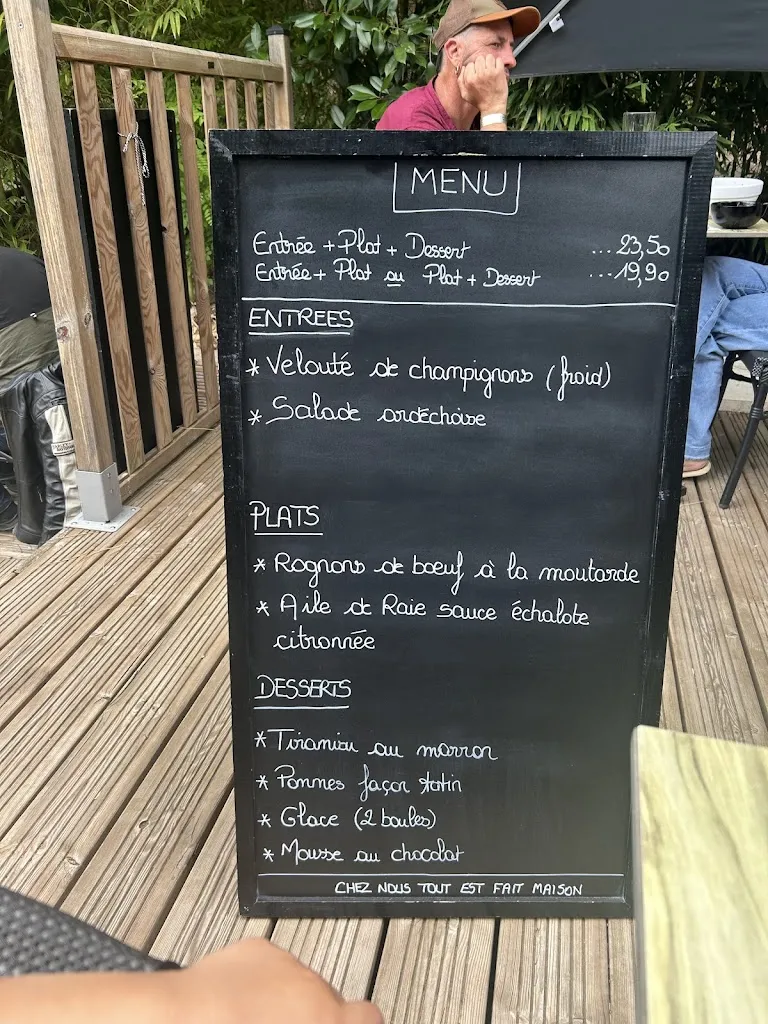 MENU
Entrée + Plat + Dessert ... 23,50
Entrée + Plat ou Plat + Dessert ... 19,90
ENTREES
* Velouté de champignons (froid)
* Salade ardéchoise
PLATS
* Rognons de bœuf à la moutarde
* Aile de Raie sauce échalote
citronnée
DESSERTS
* Tiramisu au marron
* Pommes façon tatin
* Glace (2 boules)
* Mousse au chocolat
CHEZ NOUS TOUT EST FAIT MAISON